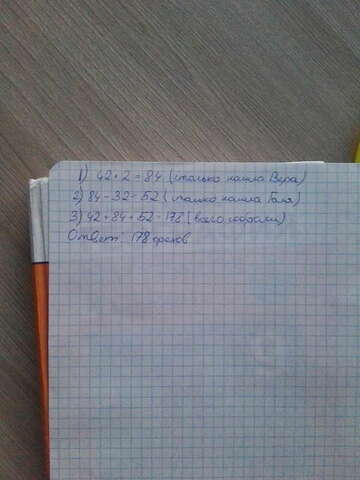 1) 42 • 2 = 84 (столько нашла Вера)
2) 84 - 32 = 52 (столько нашла Галя)
3) 42 + 84 + 52 = 178 (всего собрали)
Ответ: 178 орехов